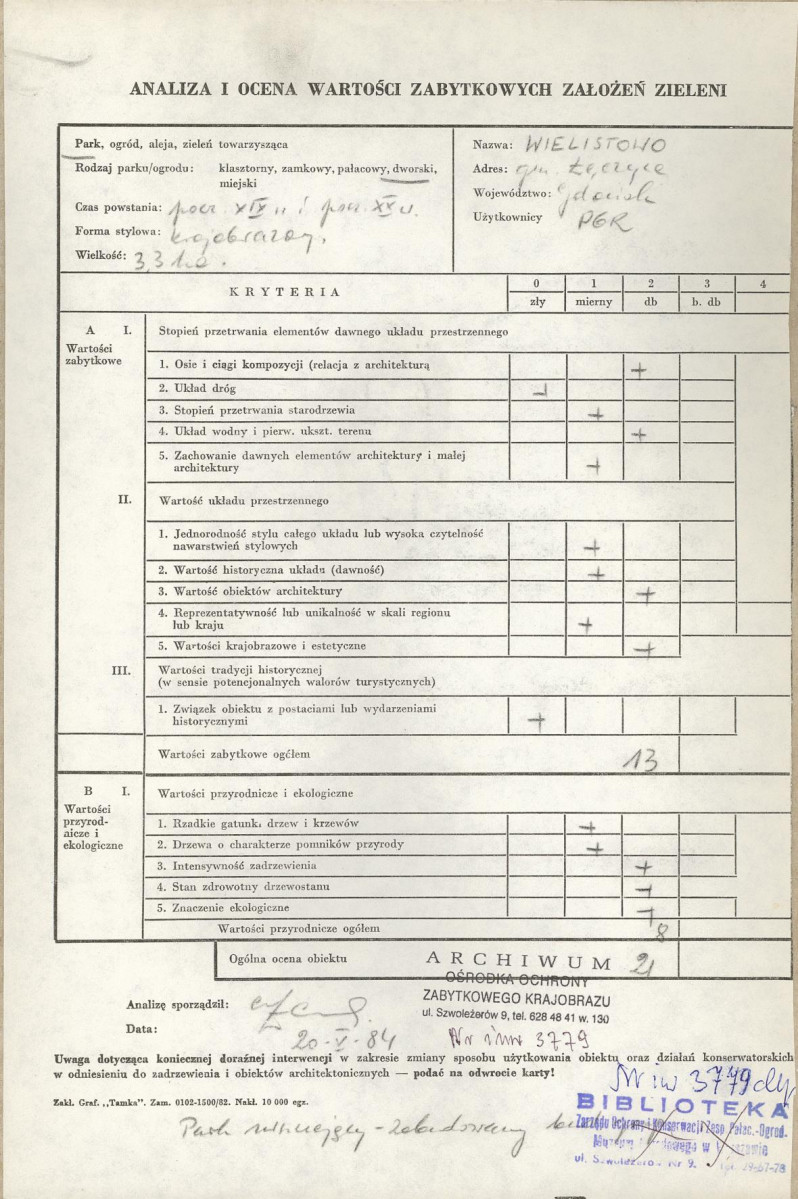 ANALIZA I OCENA WARTOŚCI ZABYTKOWYCH ZAŁOŻEŃ ZIELENI
Park, ogród, aleja, zieleń towarzysząca
Rodzaj parku/ogrodu: klasztorny, zamkowy, pałacowy, dworski,
miejski
Czas powstania: pocz. XIX w i pocz. XX w.
Forma stylowa: krajobrazowy.
Wielkość: 3,3 ha.
Nazwa: WIELISTOWO
Adres: gm. Łęczyce
Województwo: Gdańsk
Użytkownicy PGR
KRYTERIA
0 1 2 3 4
zły mierny db b. db
A I. Stopień przetrwania elementów dawnego układu przestrzennego
Wartości
zabytkowe
1. Osie i ciągi kompozycji (relacja z architekturą +
2. Układ dróg +
3. Stopień przetrwania starodrzewia +
4. Układ wodny i pierw. ukszt. terenu +
5. Zachowanie dawnych elementów architektury i małej
architektury +
II. Wartość układu przestrzennego
1. Jednorodność stylu całego układu lub wysoka czytelność
nawarstwień stylowych +
2. Wartość historyczna układu (dawność) +
3. Wartość obiektów architektury +
4. Reprezentatywność lub unikalność w skali regionu
lub kraju +
5. Wartości krajobrazowe i estetyczne +
III. Wartości tradycji historycznej
(w sensie potencjonalnych walorów turystycznych)
1. Związek obiektu z postaciami lub wydarzeniami
historycznymi +
Wartości zabytkowe ogółem 13
B I. Wartości przyrodnicze i ekologiczne
Wartości
przyrod-
nicze i
ekologiczne
1. Rzadkie gatunki drzew i krzewów +
2. Drzewa o charakterze pomników przyrody +
3. Intensywność zadrzewienia +
4. Stan zdrowotny drzewostanu +
5. Znaczenie ekologiczne +
Wartości przyrodnicze ogółem 8
Ogólna ocena obiektu 21
ARCHIWUM
OŚRODKA OCHRONY
ZABYTKOWEGO KRAJOBRAZU
ul. Szwoleżerów 9, tel. 628 48 41 w. 130
Nr inw 3779
Analizę sporządził:
Data: 20-V-84
Uwaga dotycząca koniecznej doraźnej interwencji w zakresie zmiany sposobu użytkowania obiektu oraz działań konserwatorskich
w odniesieniu do zadrzewienia i obiektów architektonicznych — podać na odwrocie karty!
Nr inw 3779
Zakł. Graf. „Tamka". Zam. 0102-1500/82. Nakł. 10 000 egz.
BIBLIOTEKA
Zarządu Ochrony i Konserwacji Zesp. Pałac.-Ogrod.
Muzeum Narodowego w Warszawie
ul. Szwoleżerów Nr 9. tel. 29-67-78
Park